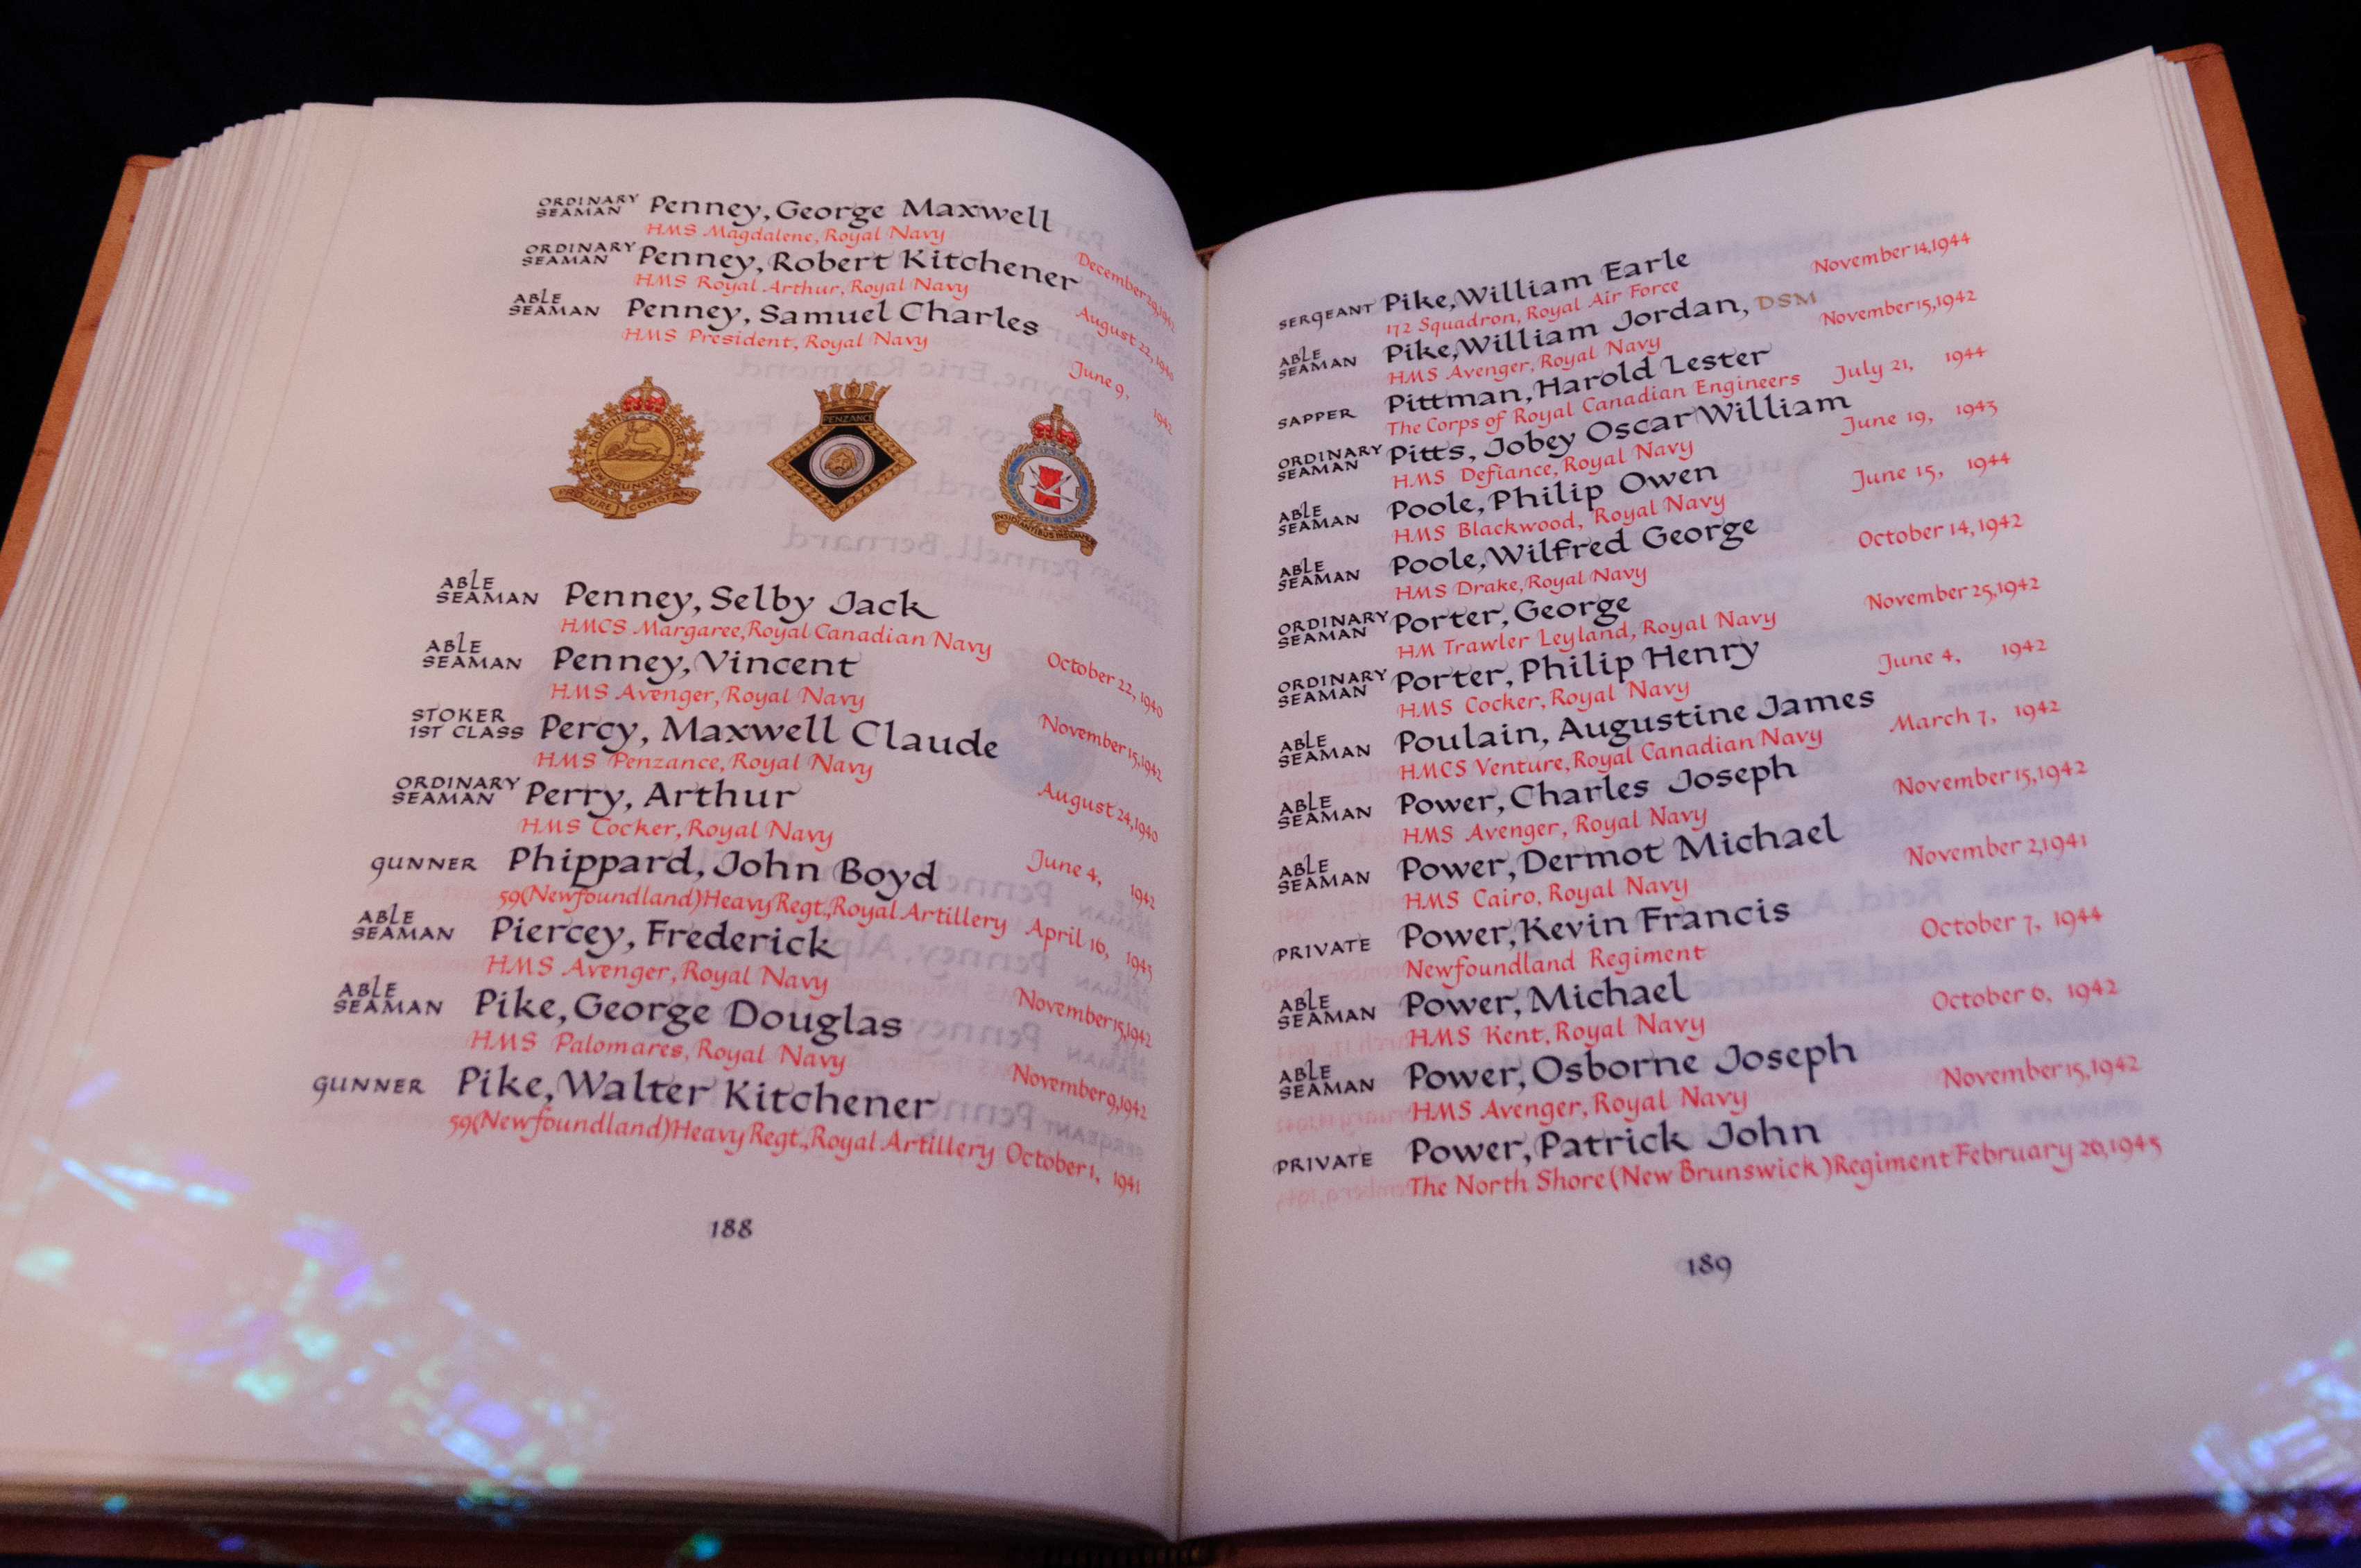 ORDINARY SEAMAN Penney, George Maxwell
HMS Magdalene, Royal Navy December 29, 1942
ORDINARY SEAMAN Penney, Robert Kitchener
HMS Royal Arthur, Royal Navy August 22, 1940
ABLE SEAMAN Penney, Samuel Charles
HMS President, Royal Navy June 9, 1942
NORTH SHORE
NEW BRUNSWICK
PRO JURE CONSTANS
PENZANCE
INSIDIANTIBUS INSIDIAE
ABLE SEAMAN Penney, Selby Jack
HMCS Margaree, Royal Canadian Navy October 22, 1940
ABLE SEAMAN Penney, Vincent
HMS Avenger, Royal Navy November 15, 1942
STOKER 1ST CLASS Percy, Maxwell Claude
HMS Penzance, Royal Navy August 24, 1940
ORDINARY SEAMAN Perry, Arthur
HMS Cocker, Royal Navy June 4, 1942
GUNNER Phippard, John Boyd
59(Newfoundland)Heavy Regt., Royal Artillery April 16, 1945
ABLE SEAMAN Piercey, Frederick
HMS Avenger, Royal Navy November 15, 1942
ABLE SEAMAN Pike, George Douglas
HMS Palomares, Royal Navy November 9, 1942
GUNNER Pike, Walter Kitchener
59(Newfoundland)Heavy Regt., Royal Artillery October 1, 1941
188
SERGEANT Pike, William Earle
172 Squadron, Royal Air Force November 14, 1944
ABLE SEAMAN Pike, William Jordan, DSM
HMS Avenger, Royal Navy November 15, 1942
SAPPER Pittman, Harold Lester
The Corps of Royal Canadian Engineers July 21, 1944
ORDINARY SEAMAN Pitts, Jobey Oscar William
HMS Defiance, Royal Navy June 19, 1943
ABLE SEAMAN Poole, Philip Owen
HMS Blackwood, Royal Navy June 15, 1944
ABLE SEAMAN Poole, Wilfred George
HMS Drake, Royal Navy October 14, 1942
ORDINARY SEAMAN Porter, George
HM Trawler Leyland, Royal Navy November 25, 1942
ORDINARY SEAMAN Porter, Philip Henry
HMS Cocker, Royal Navy June 4, 1942
ABLE SEAMAN Poulain, Augustine James
HMCS Venture, Royal Canadian Navy March 7, 1942
ABLE SEAMAN Power, Charles Joseph
HMS Avenger, Royal Navy November 15, 1942
ABLE SEAMAN Power, Dermot Michael
HMS Cairo, Royal Navy November 2, 1941
PRIVATE Power, Kevin Francis
Newfoundland Regiment October 7, 1944
ABLE SEAMAN Power, Michael
HMS Kent, Royal Navy October 6, 1942
ABLE SEAMAN Power, Osborne Joseph
HMS Avenger, Royal Navy November 15, 1942
PRIVATE Power, Patrick John
The North Shore (New Brunswick) Regiment February 26, 1945
189